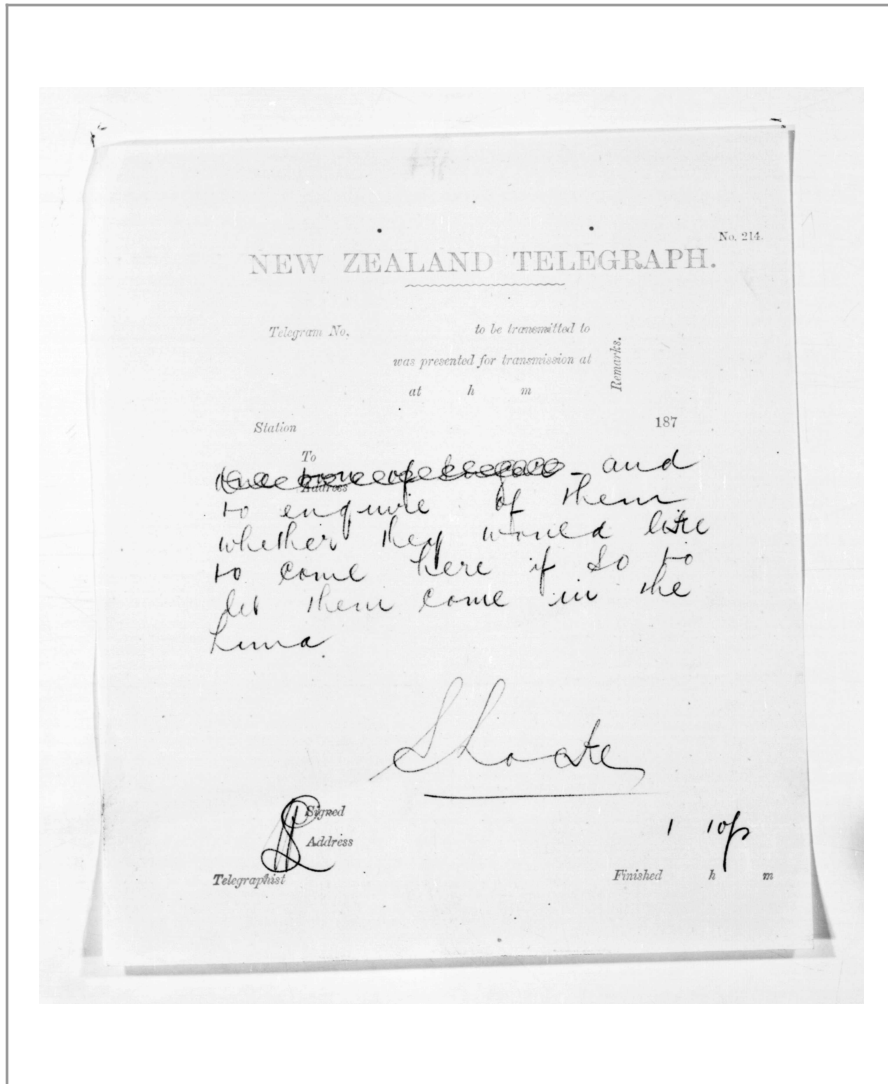 No. 214.
NEW ZEALAND TELEGRAPH.
Telegram No. to be transmitted to
was presented for transmission at
at h m
Remarks.
Station 187
To
Address
and
to enquire of them
whether they would like
to come here if so to
let them come in the
Luna
S Locke
Signed
Address
1 10p
Telegraphist Finished h m